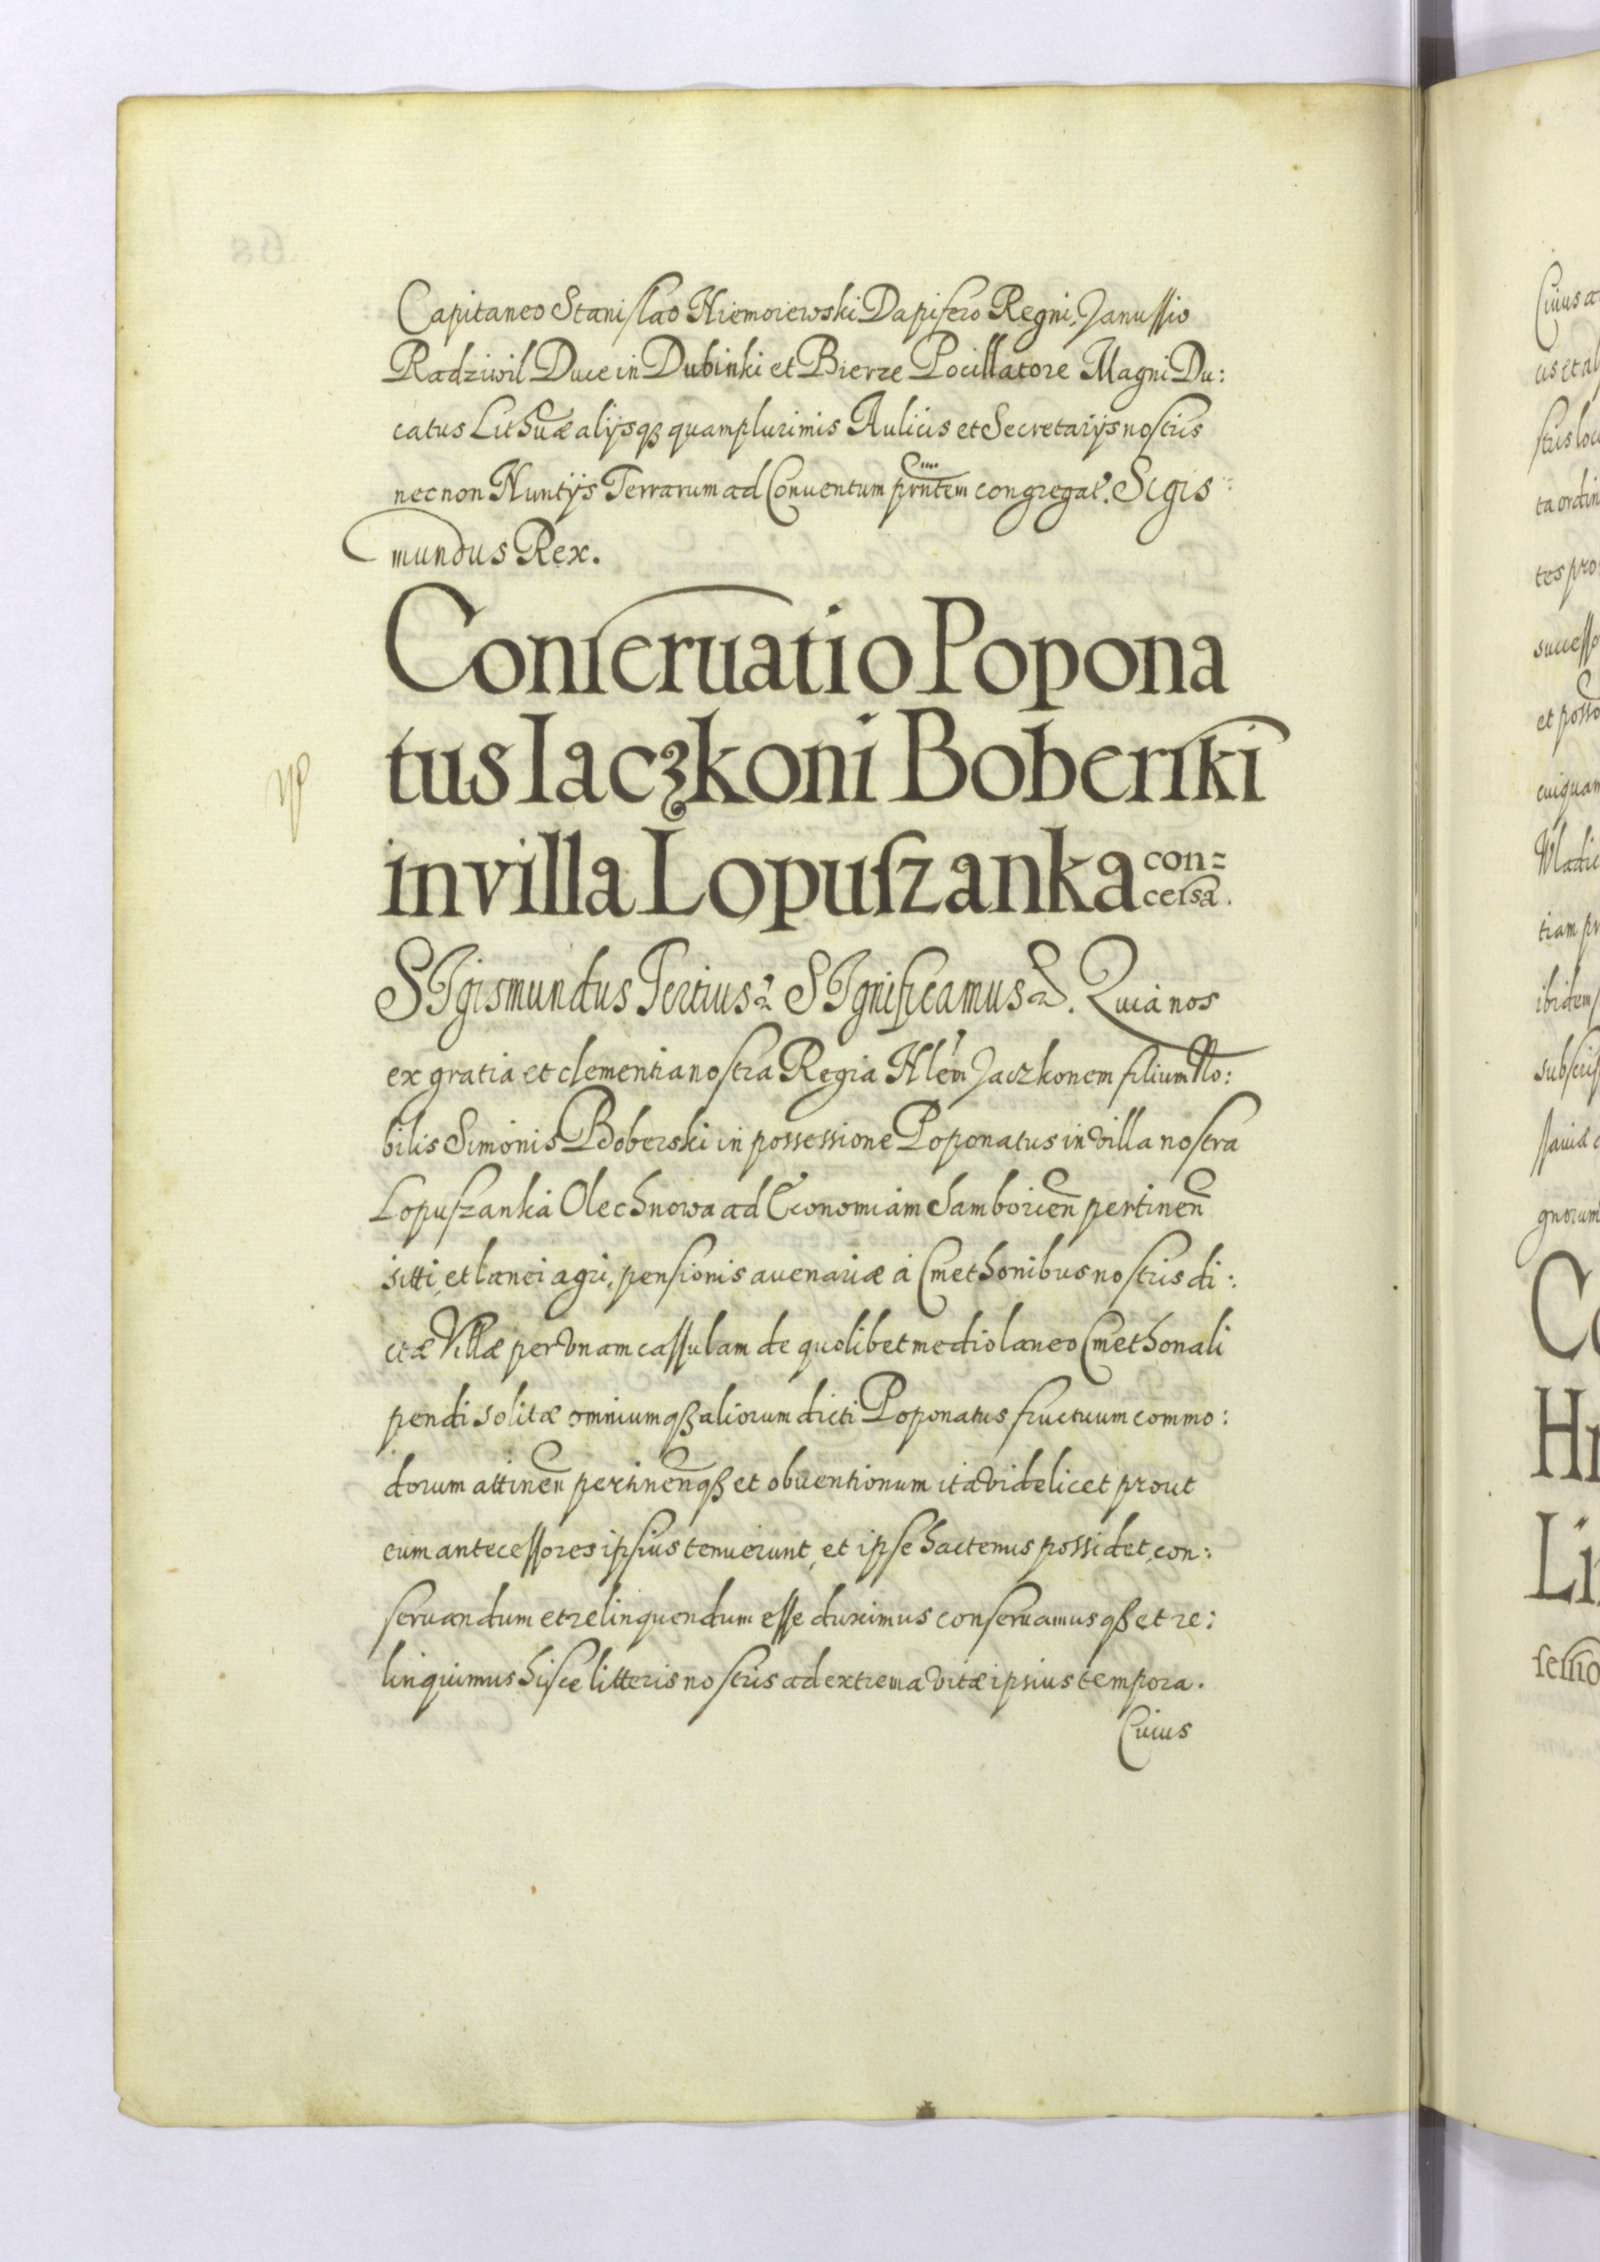 Capitaneo Stanislao Niemoiewski Dapifero Regni, Janussio
Radziwil Duce in Dubinki et Bierze Pocillatore Magni Du:
catus Lithuae alijsq3 quamplurimis Aulicis et Secretarijs nostris
necnon Nuntijs Terrarum ad Conuentum prntem congregat. Sigis:
mundus Rex.
Conseruatio Popona
tus Iaczkoni Boberski
in villa Lopuszanka con=
cessa.
SIgismundus Tertius &. SIgnificamus &. Quia nos
ex gratia et clementia nostra Regia Nlem Jaczkonem filium No:
bilis Simonis Boberski in possessione Poponatus in villa nostra
Lopuszanka Olechnowa ad Economiam Samborien pertinen
sitti, et lanei agri, pensionis avenariae a Cmethonibus nostris di:
ctae Villae per vnam cassulam de quolibet mediolaneo Cmethonali
pendi solitae omniumq3 aliorum dicti Poponatus fructuum commo:
dorum attinen pertinenq3 et obuentionum ita videlicet prout
eum antecessores ipsius tenuerunt, et ipse hactenus possidet, con:
seruandum et relinquendum esse duximus conseruamusq3 et re:
linquimus hisce litteris nostris ad extrema vitae ipsius tempora.
Cuius